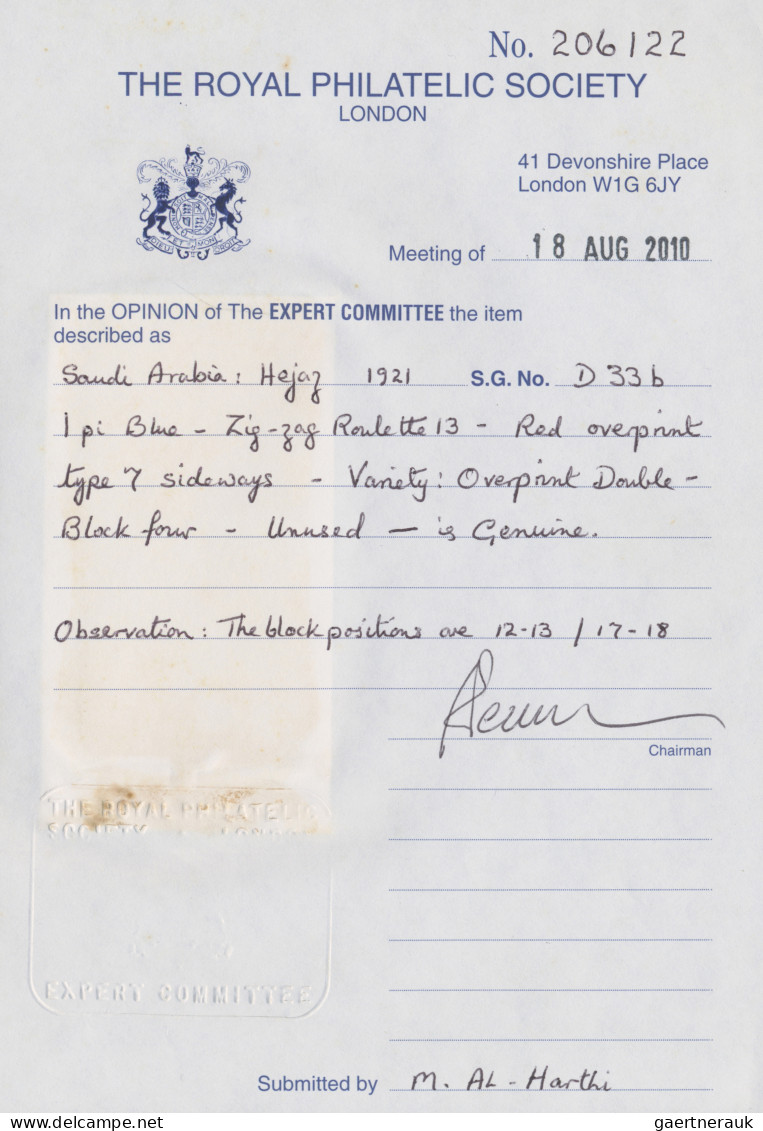 No. 206122
THE ROYAL PHILATELIC SOCIETY
LONDON
41 Devonshire Place
London W1G 6JY
Meeting of 18 AUG 2010
In the OPINION of The EXPERT COMMITTEE the item
described as
Saudi Arabia: Hejaz 1921 S.G. No. D 33b
1 pi Blue - Zig-zag Roulette 13 - Red overprint
type 7 sideways - Variety: Overprint Double -
Block four - Unused - is Genuine.
Observation: The block positions are 12-13 / 17-18
Chairman
THE ROYAL PHILATELIC
SOCIETY LONDON
EXPERT COMMITTEE
Submitted by M. AL-Harthi
gaertnerauk